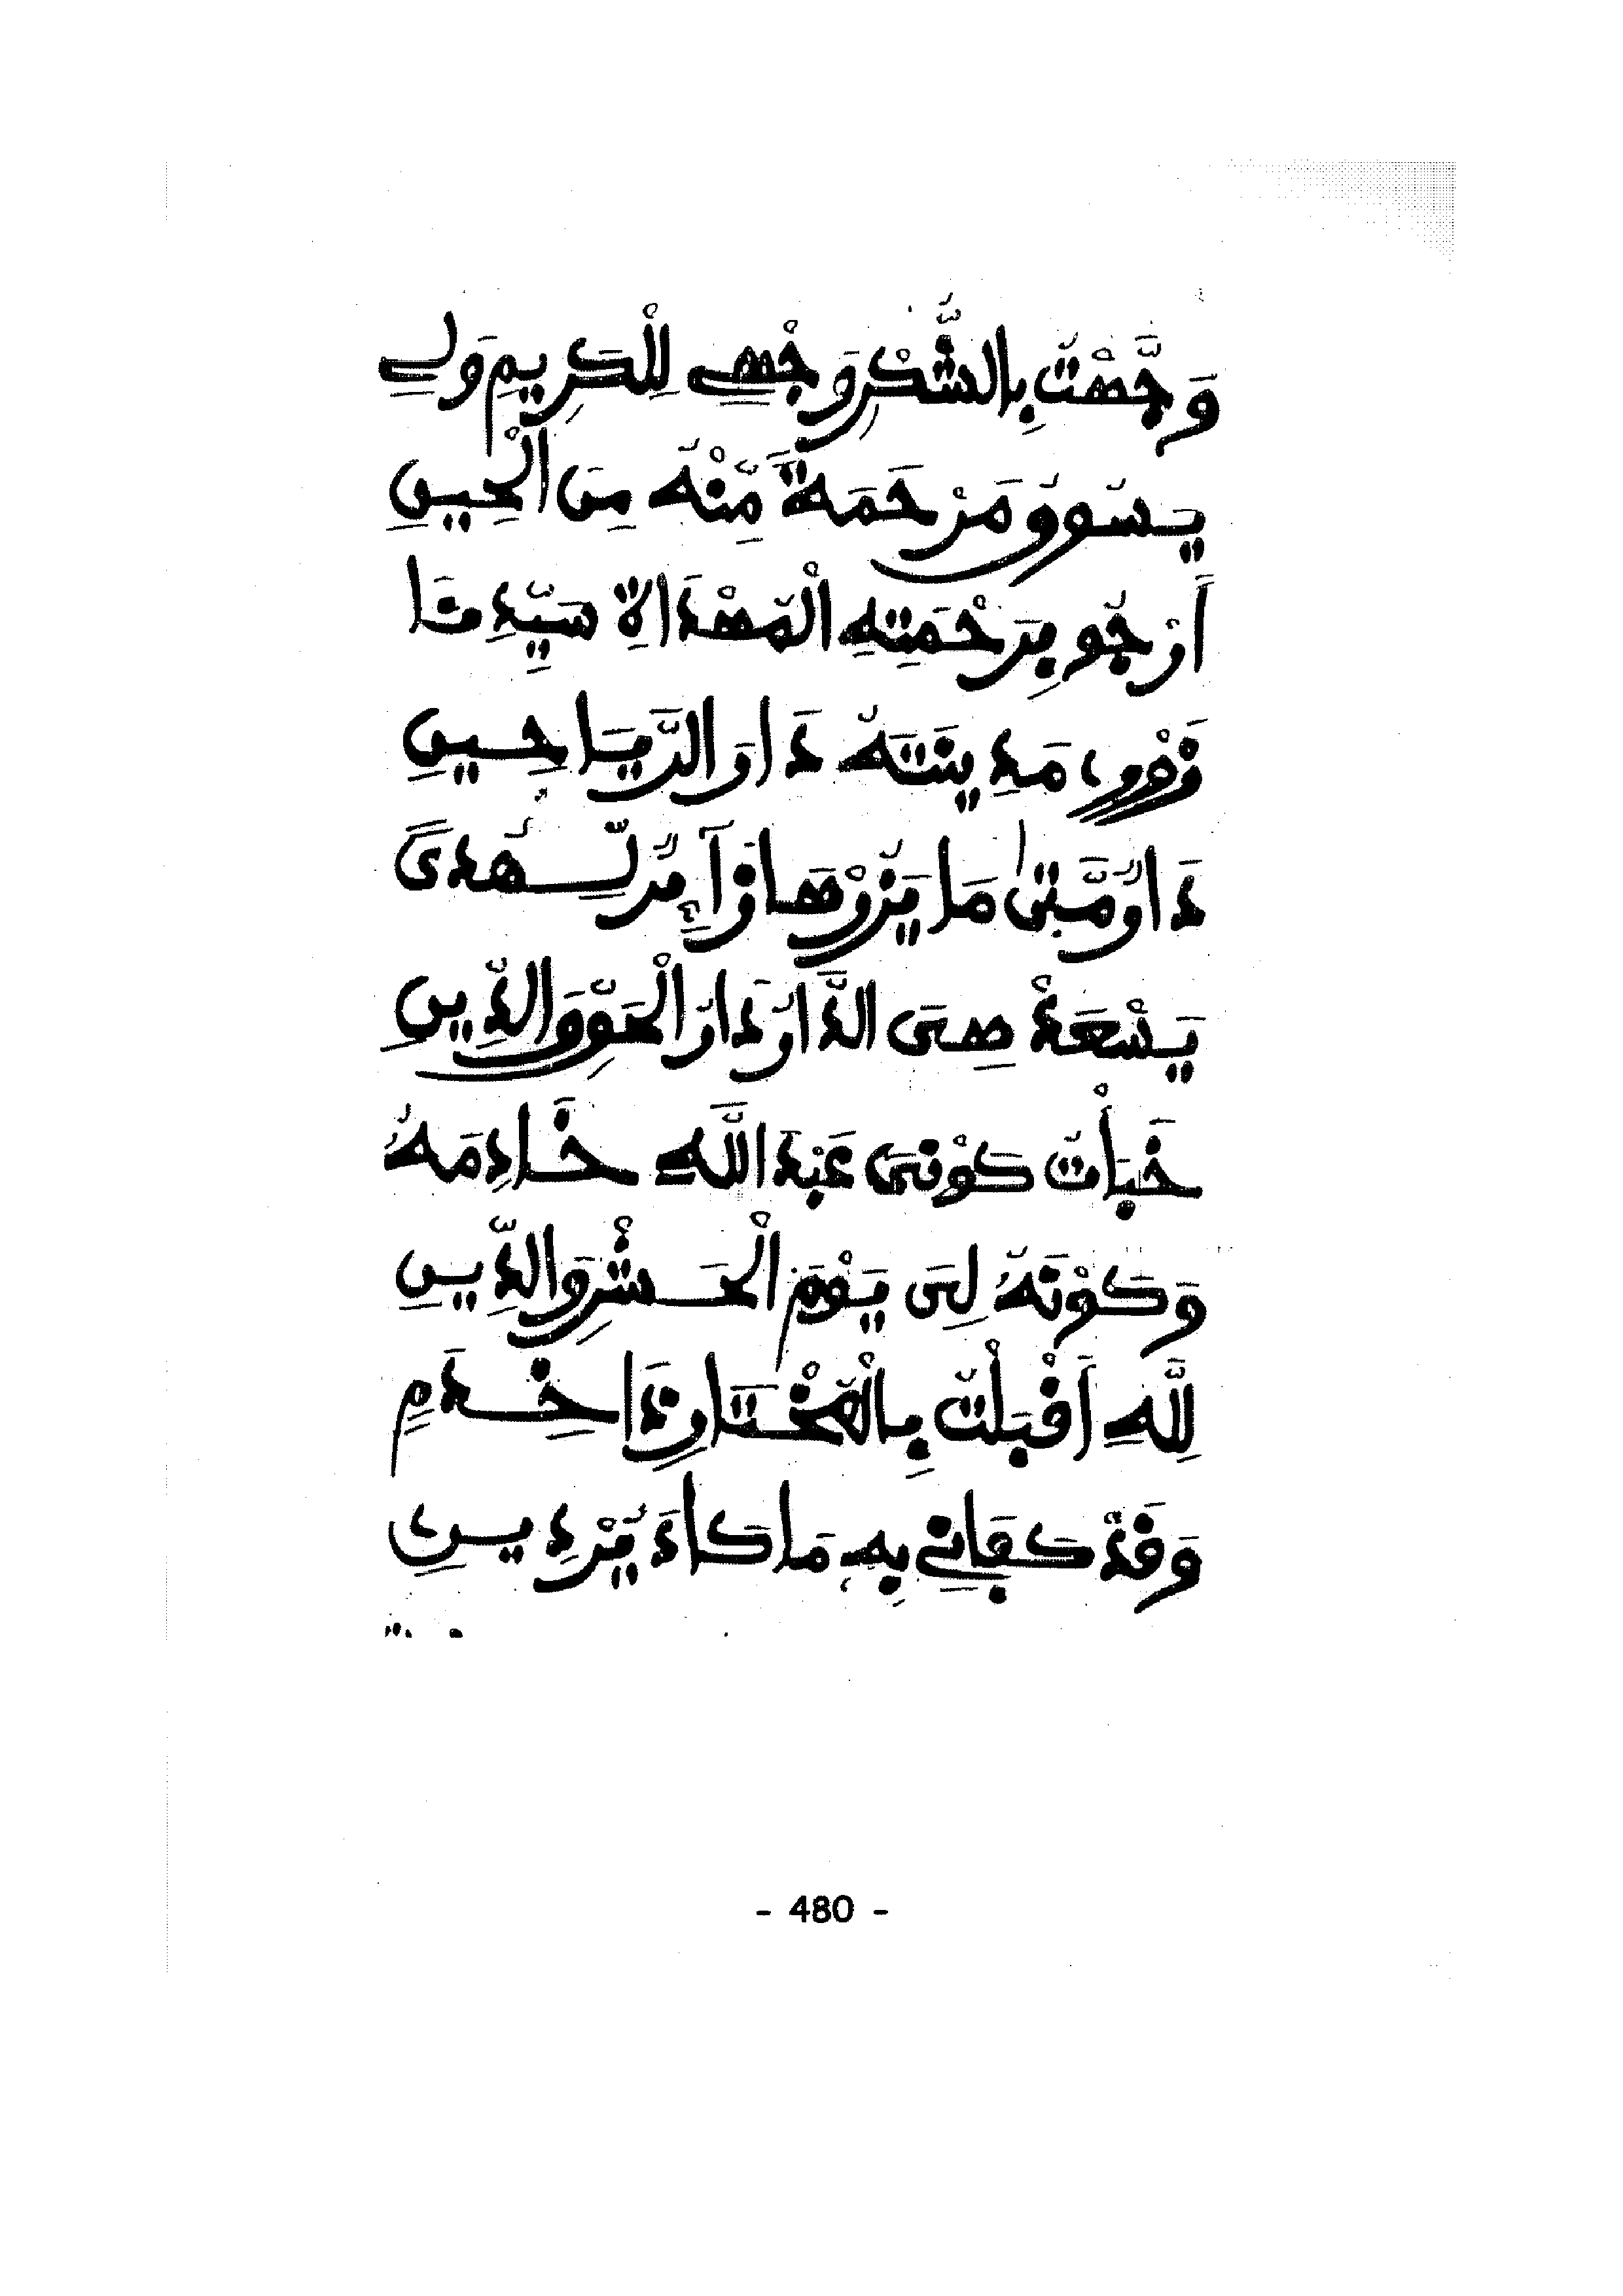 وَجَّهْتُ بِالشُّكْرِ وَجْهِي لِلْكَرِيمِ وَلِي
يَسُوقُ مَرْحَمَةً مِّنْهُ مِنَ الْحِينِ
أَرْجُو بِرَحْمَتِهِ الْمُهْدَاةِ سَيِّدِنَا
مَدِينَتَهُ دَارَ الرَّيَاحِينِ
دَارٌ مَّتَى مَا يَزُرْهَا زَآئِرٌ لِّهُدًى
يَسْعَدْ هِيَ الدَّارُ دَارُ الْحَقِّ وَالدِّينِ
خَبَأْتُ كَوْنِيَ عَبْدَ اللَّهِ خَادِمَهُ
وَكَوْنَهُ لِيَ يَوْمَ الْحَشْرِ وَالدِّينِ
لِلَّهِ أَقْبَلْتُ بِالْمُخْتَارِ ذَا خِدَمٍ
وَقَدْ كَفَانِي بِهِ مَا كَادَ يُرْدِينِي
- 480 -